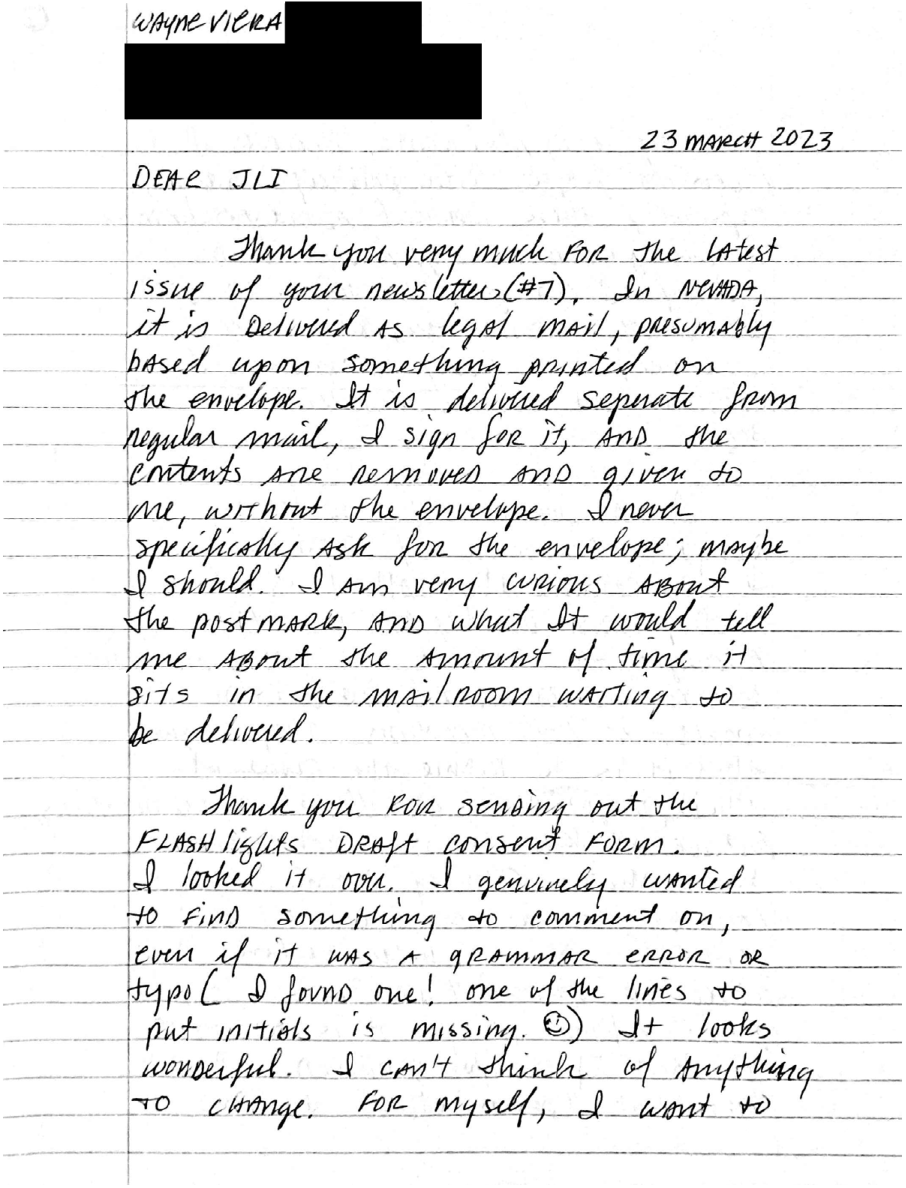 WAYNE VIERA
23 MARCH 2023
DEAR JLI
Thank you very much FOR the LAtest
issue of your newsletter (#7). In NEVADA,
it is Delivered AS legal MAIL, presumably
bAsed upon something printed on
the envelope. It is delivered seperate from
regular mail, I sign for it, AND the
contents are removed AND given to
me, without the envelope. I never
specifically Ask for the envelope; maybe
I should. I Am very curious ABout
the postmARK, AND what It would tell
me ABout the Amount of time it
sits in the mailroom wAiting to
be delivered.
Thank you FOR senDing out the
FLASHlights DRAft consent FORM.
I looked it over. I genuinely wAnted
to FinD something to comment on,
even if it WAS A gRAMMAR ERROR OR
typo ( I founD one! one of the lines to
put initials is missing. ☺) It looks
wonDerful. I cAn't think of Anything
to chAnge. FOR myself, I want to